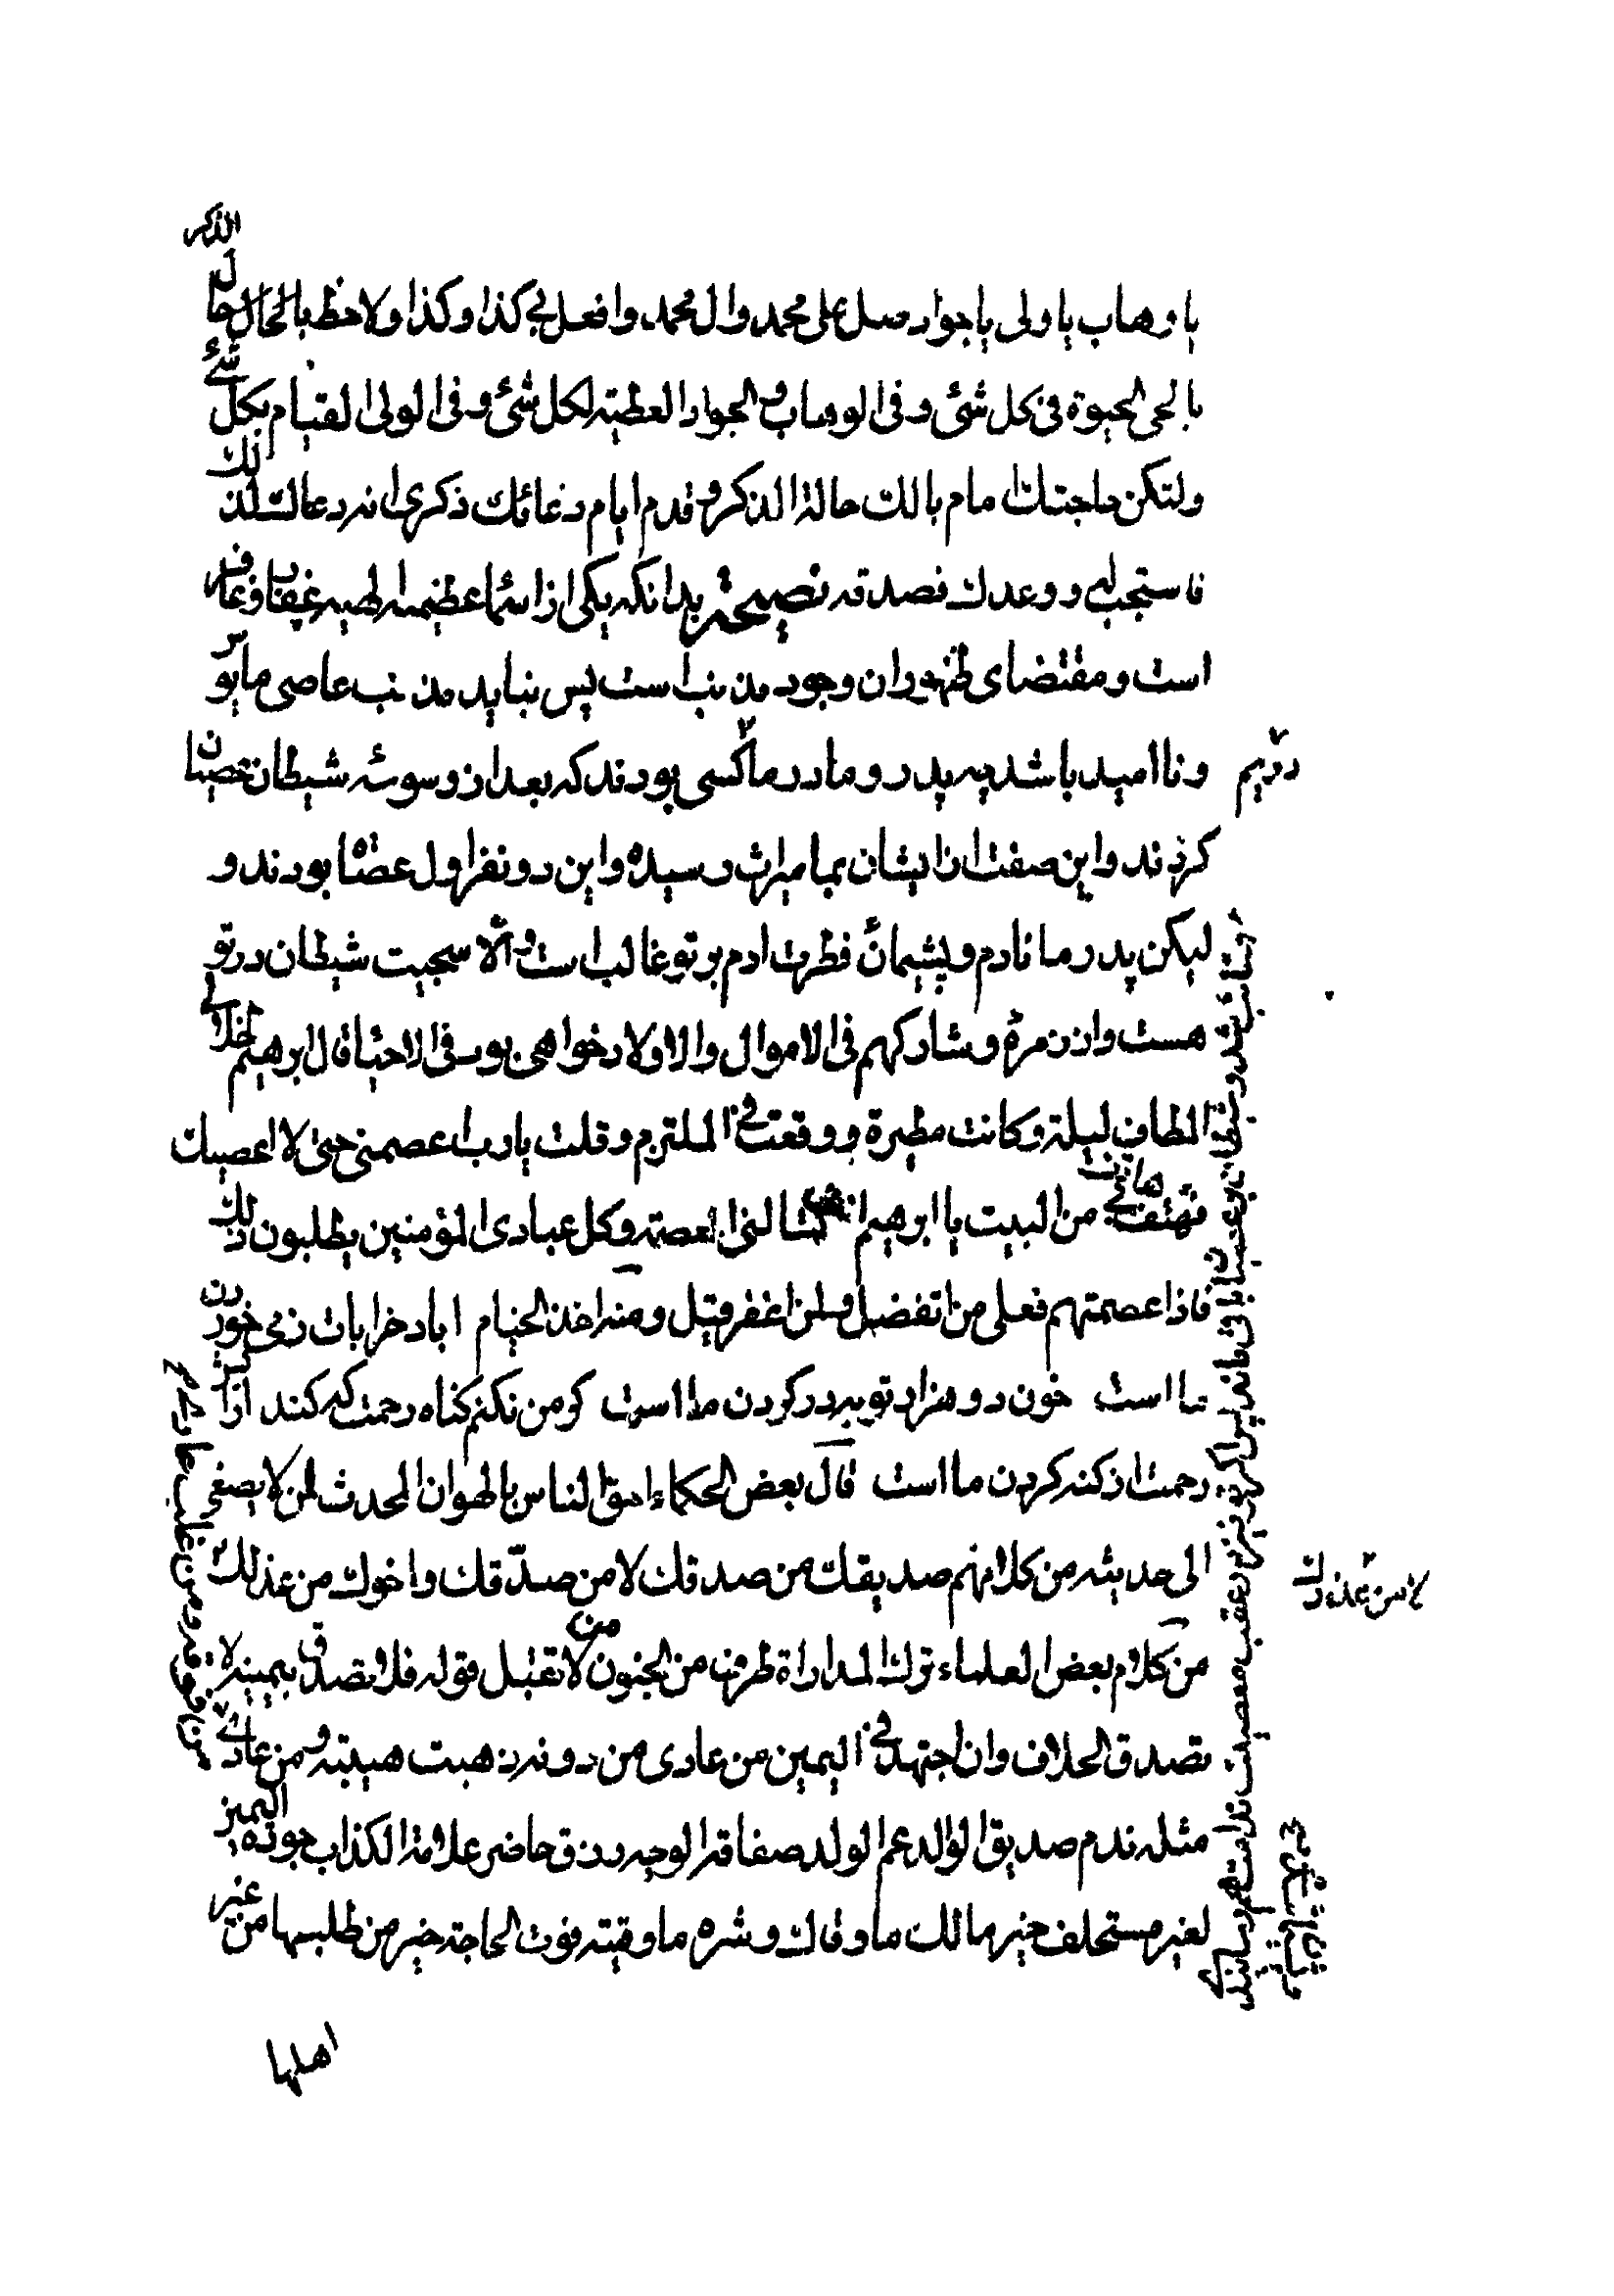 يا وهاب يا ولى يا جواد صل على محمد وال محمد وافعل بى كذا وكذا ولاحظ بالحال حال الذكر
بالحى الحيوة فى كل شئ وفى الوهاب والجواد العطية لكل شئ وفى الولى القيام بكل شئ
ولتكن حاجتك امام بالك حالة الذكر وقدم امام دعائك ذكرى انه دعاك لذلك
فاستجب له ووعدك فصدقه نصيحة بدانكه يكى از اسماء عظيمه الهيه غفار وغافر
است ومقتضاى ظهور ان وجود مذنب است پس نبايد مذنب عاصى مايوس
ونااميد باشد چه پدر ومادر ما كسى بودند كه بعد از وسوسه شيطان عصيان
كردند واين صفت از ايشان بما ميراث رسيده واين دو نفر اول عصاة بودند و
ليكن پدر ما نادم وپشيمان فطرت ادم بر تو غالب است والا سجيت شيطان در تو
هست واز زمره وشاركهم فى الاموال والاولاد خواهى بود فى الاحيا قال ابرهيم خلا لى
المطاف ليلة وكانت مطيرة ووقفت فى الملتزم وقلت يا رب اعصمنى حتى لا اعصيك
فهتف بى هاتف من البيت يا ابرهيم انت تسالنى العصمة وكل عبادى المؤمنين يطلبون ذلك
فاذا عصمتهم فعلى من اتفضل ولمن اغفر قيل ومنه اخذ الخيام اباد خرابات ز مى خوردن
ما است خون دو هزار توبه در گردن ما است گر من نكنم گناه رحمت كه كند ارايش
رحمت از گنه كردن ما است قال بعض الحكماء احق الناس بالهوان المحدث لمن لا يصغى
الى حديثه من كلامهم صديقك من صدقك لا من صدّقك واخوك من عذلك
من كلام بعض العلماء ترك المداراة طرف من الجنون من لا تقبل قوله فلا تصدق يمينه لا
تصدق الحلاف وان اجتهد فى اليمين من عادى من دونه ذهبت هيبته ومن عادى
مثله ندم صديق الوالد عم الولد صفاقة الوجه رزق حاضر علامة الكذاب جوده باليمين
لغير مستحلف خير مالك ما وقاك وشره ما وقيته فوت الحاجة خير من طلبها من غير
اهلها
لا من عذرك